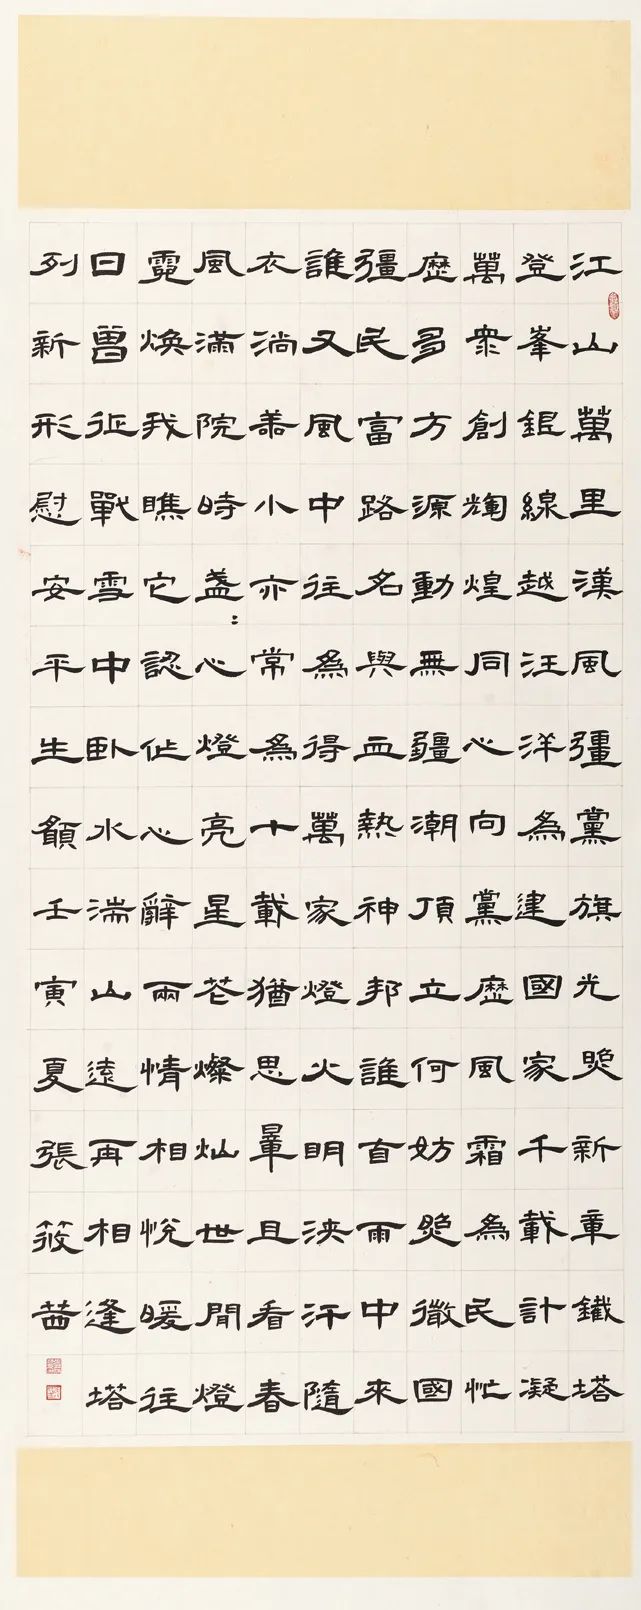 江山萬里漢風疆黨旗光照新章鐵塔
登峯銀線越汪洋為建國家千載計凝
萬衆創輝煌同心向黨歷風霜為民忙
歷多方源動無疆潮頂立何妨照徵國
疆民富路名與血熱神邦誰首雨中來
誰又風中往為得萬家燈火明浹汗隨
衣淌恙小亦常為十載猶思暈且看春
風滿院時盞〻心燈亮星芒燦灿世間燈
霓煥我瞧它認作心辭兩情相悅暖往
日曾征戰雪中臥水湍山遠再相逢塔
列新形慰安平生願壬寅夏張筱茜